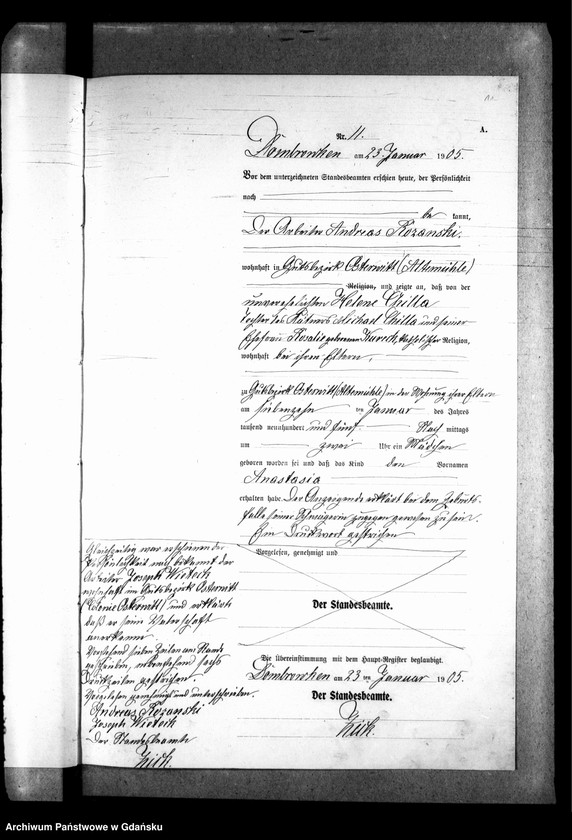 A.
Nr. 11.
Dombrowken am 23 Januar 1905.
Vor dem unterzeichneten Standesbeamten erschien heute, der Persönlichkeit
nach
be kannt,
Der Arbeiter Andreas Rozanski.
wohnhaft in Gutsbezirk Osterwitt (Altemühle)
Religion, und zeigte an, daß von der
unverehelichten Helene Chilla
Tochter des Käthners Michael Chilla und seiner
Ehefrau Rosalie geborenen katholischer Religion,
wohnhaft bei ihren Eltern,
zu Gutsbezirk Osterwitt (Altemühle) in der Wohnung ihrer Eltern
am siebenzehn ten Januar des Jahres
tausend neunhundert und fünf Nach mittags
um zwei Uhr ein Mädchen
geboren worden sei und daß das Kind den Vornamen
Anastasia
erhalten habe. Der Anzeigende erklärt bei dem Geburts-
falle seiner Schwägerin zugegen gewesen zu sein.
Ein Druckwort gestrichen
Vorgelesen, genehmigt und
Der Standesbeamte.
Die Übereinstimmung mit dem Haupt-Register beglaubigt.
Dombrowken am 23 ten Januar 1905.
Der Standesbeamte.
Gleichzeitig war erschienen der
Persönlichkeit nach bekannt der
Arbeiter Joseph Wietech
wohnhaft im Gutsbezirk Osterwitt
(Kolonie Osterwitt) und erklärte
daß er seine Vaterschaft
anerkenne.
Vorstehend sieben Zeilen am Rande
geschrieben, nebenstehend sechs
Druckzeilen gestrichen.
Vorgelesen genehmigt und unterschrieben.
Andreas Rozanski
Joseph Wietech
Der Standesbeamte
Archiwum Państwowe w Gdańsku